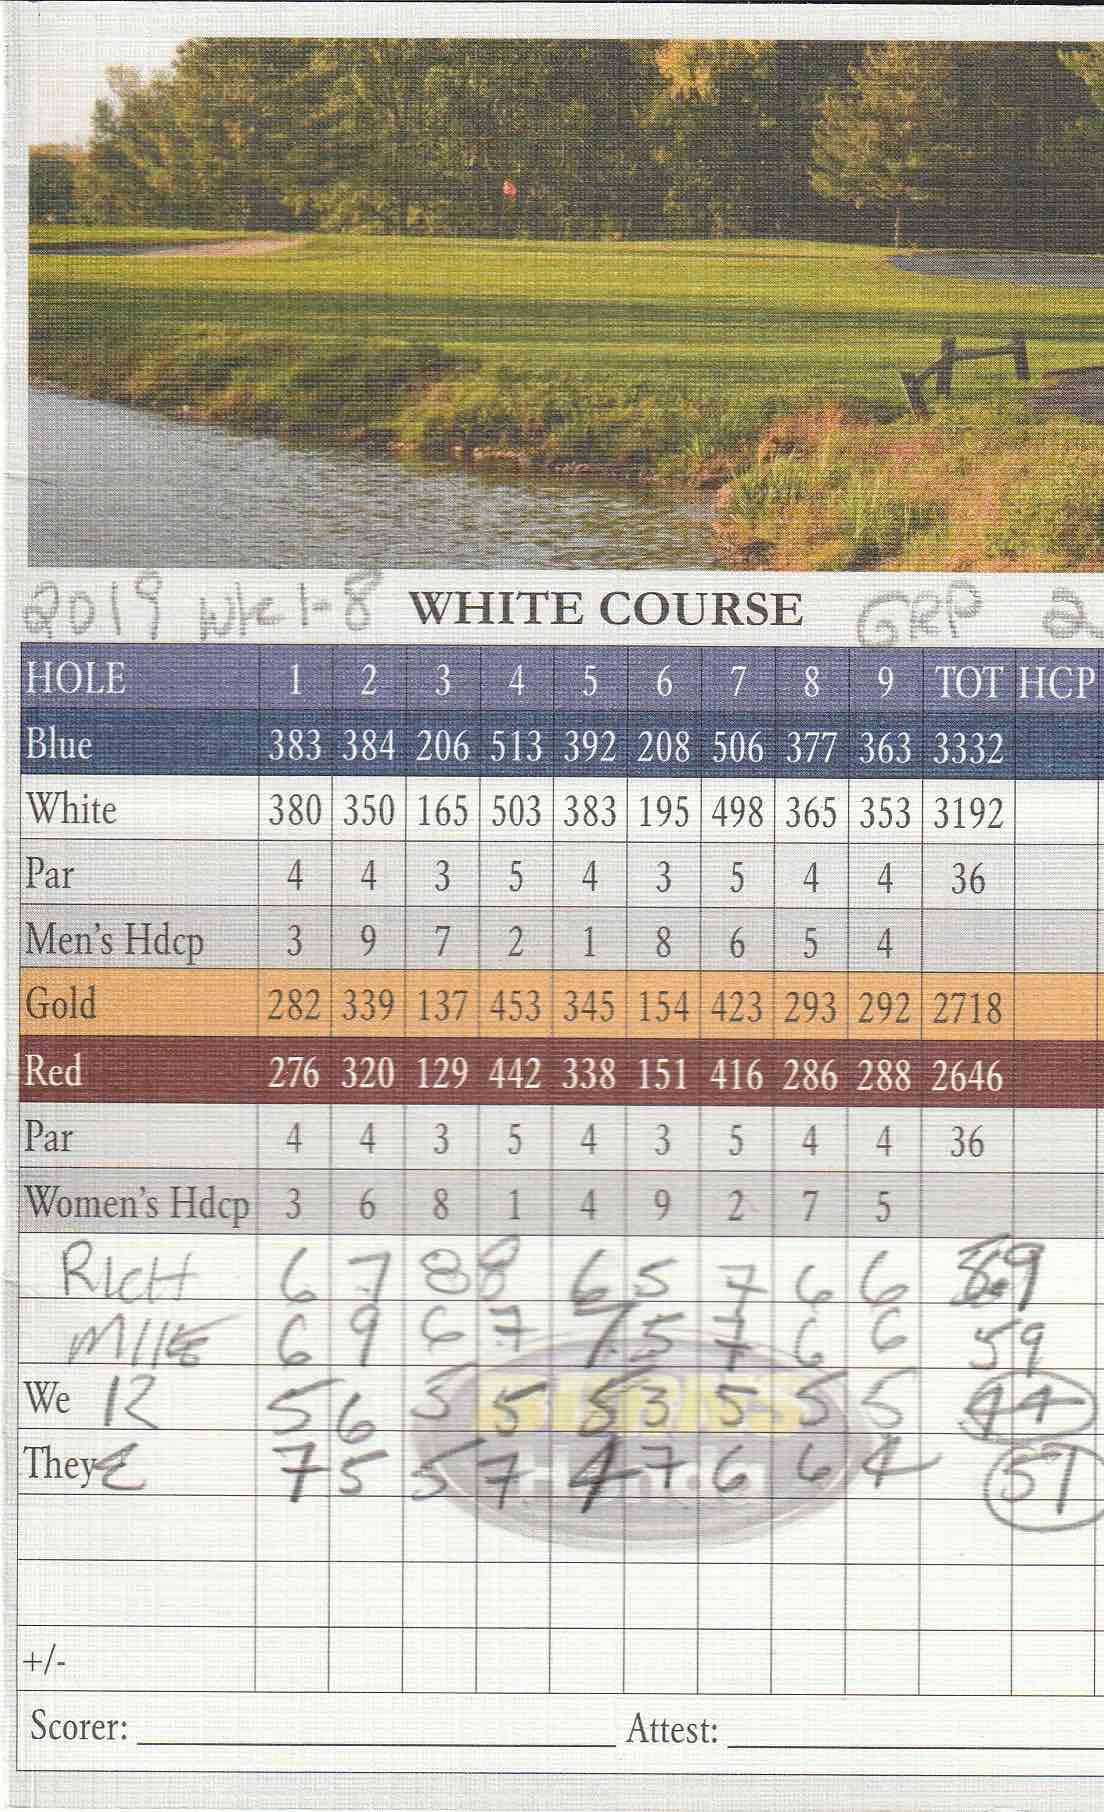 2019 wk 1-8 WHITE COURSE GRP 2
HOLE 1 2 3 4 5 6 7 8 9 TOT HCP
Blue 383 384 206 513 392 208 506 377 363 3332
White 380 350 165 503 383 195 498 365 353 3192
Par 4 4 3 5 4 3 5 4 4 36
Men's Hdcp 3 9 7 2 1 8 6 5 4
Gold 282 339 137 453 345 154 423 293 292 2718
Red 276 320 129 442 338 151 416 286 288 2646
Par 4 4 3 5 4 3 5 4 4 36
Women's Hdcp 3 6 8 1 4 9 2 7 5
RICH 6 7 8 8 6 5 7 6 6 59
MIKE 6 9 6 7 7 5 7 6 6 59
We R 5 6 5 5 5 3 5 5 5 44
They 7 5 5 7 4 7 6 6 4 51
+/-
Scorer: Attest: